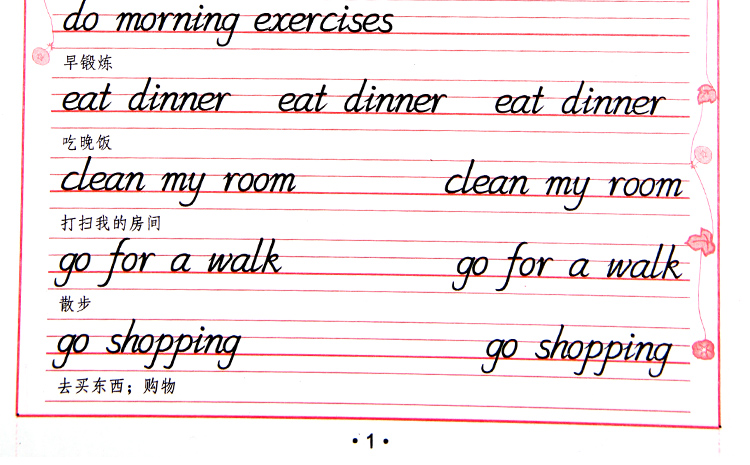 do morning exercises
早锻炼
eat dinner eat dinner eat dinner
吃晚饭
clean my room clean my room
打扫我的房间
go for a walk go for a walk
散步
go shopping go shopping
去买东西；购物
•1•